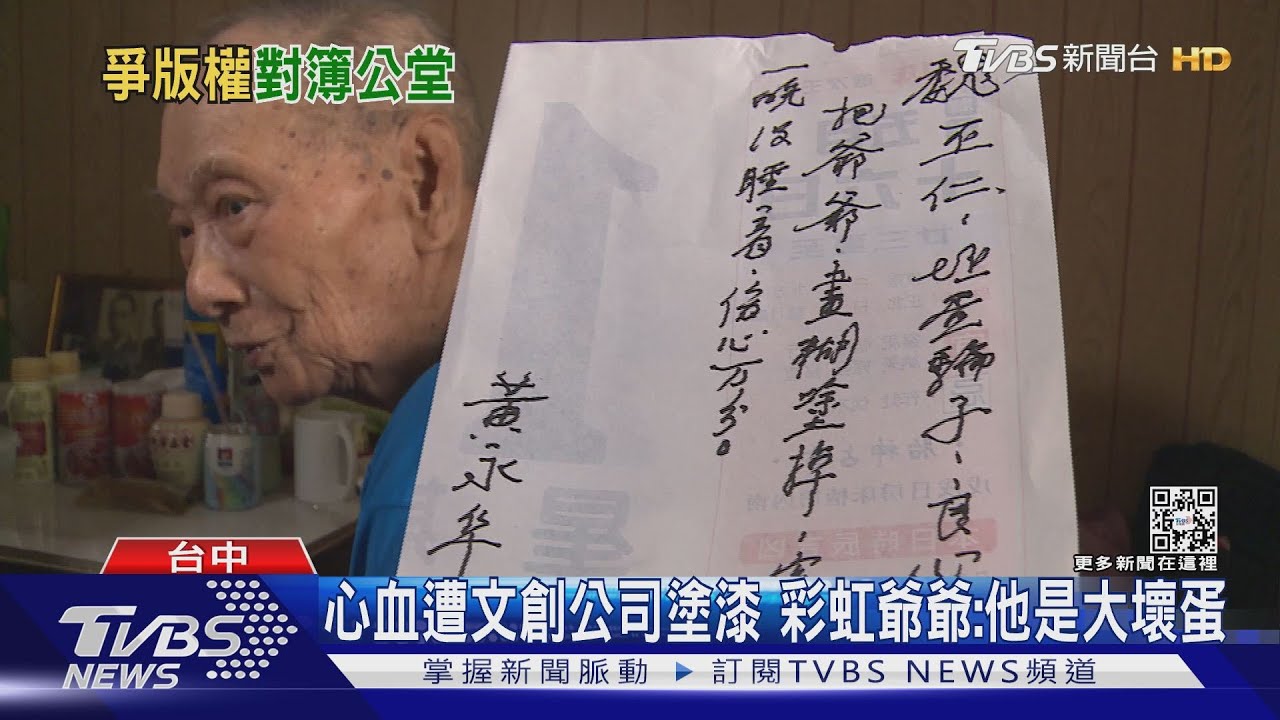 爭版權對簿公堂
TVBS新聞台 HD
魏丕仁、坯蛋騙子、良心
把爺爺、畫糊塗掉、
一晚沒睡著、傷心万分。
黃永华
更多新聞在這裡
台中
心血遭文創公司塗漆 彩虹爺爺:他是大壞蛋
TVBS NEWS
掌握新聞脈動 ▶ 訂閱TVBS NEWS頻道